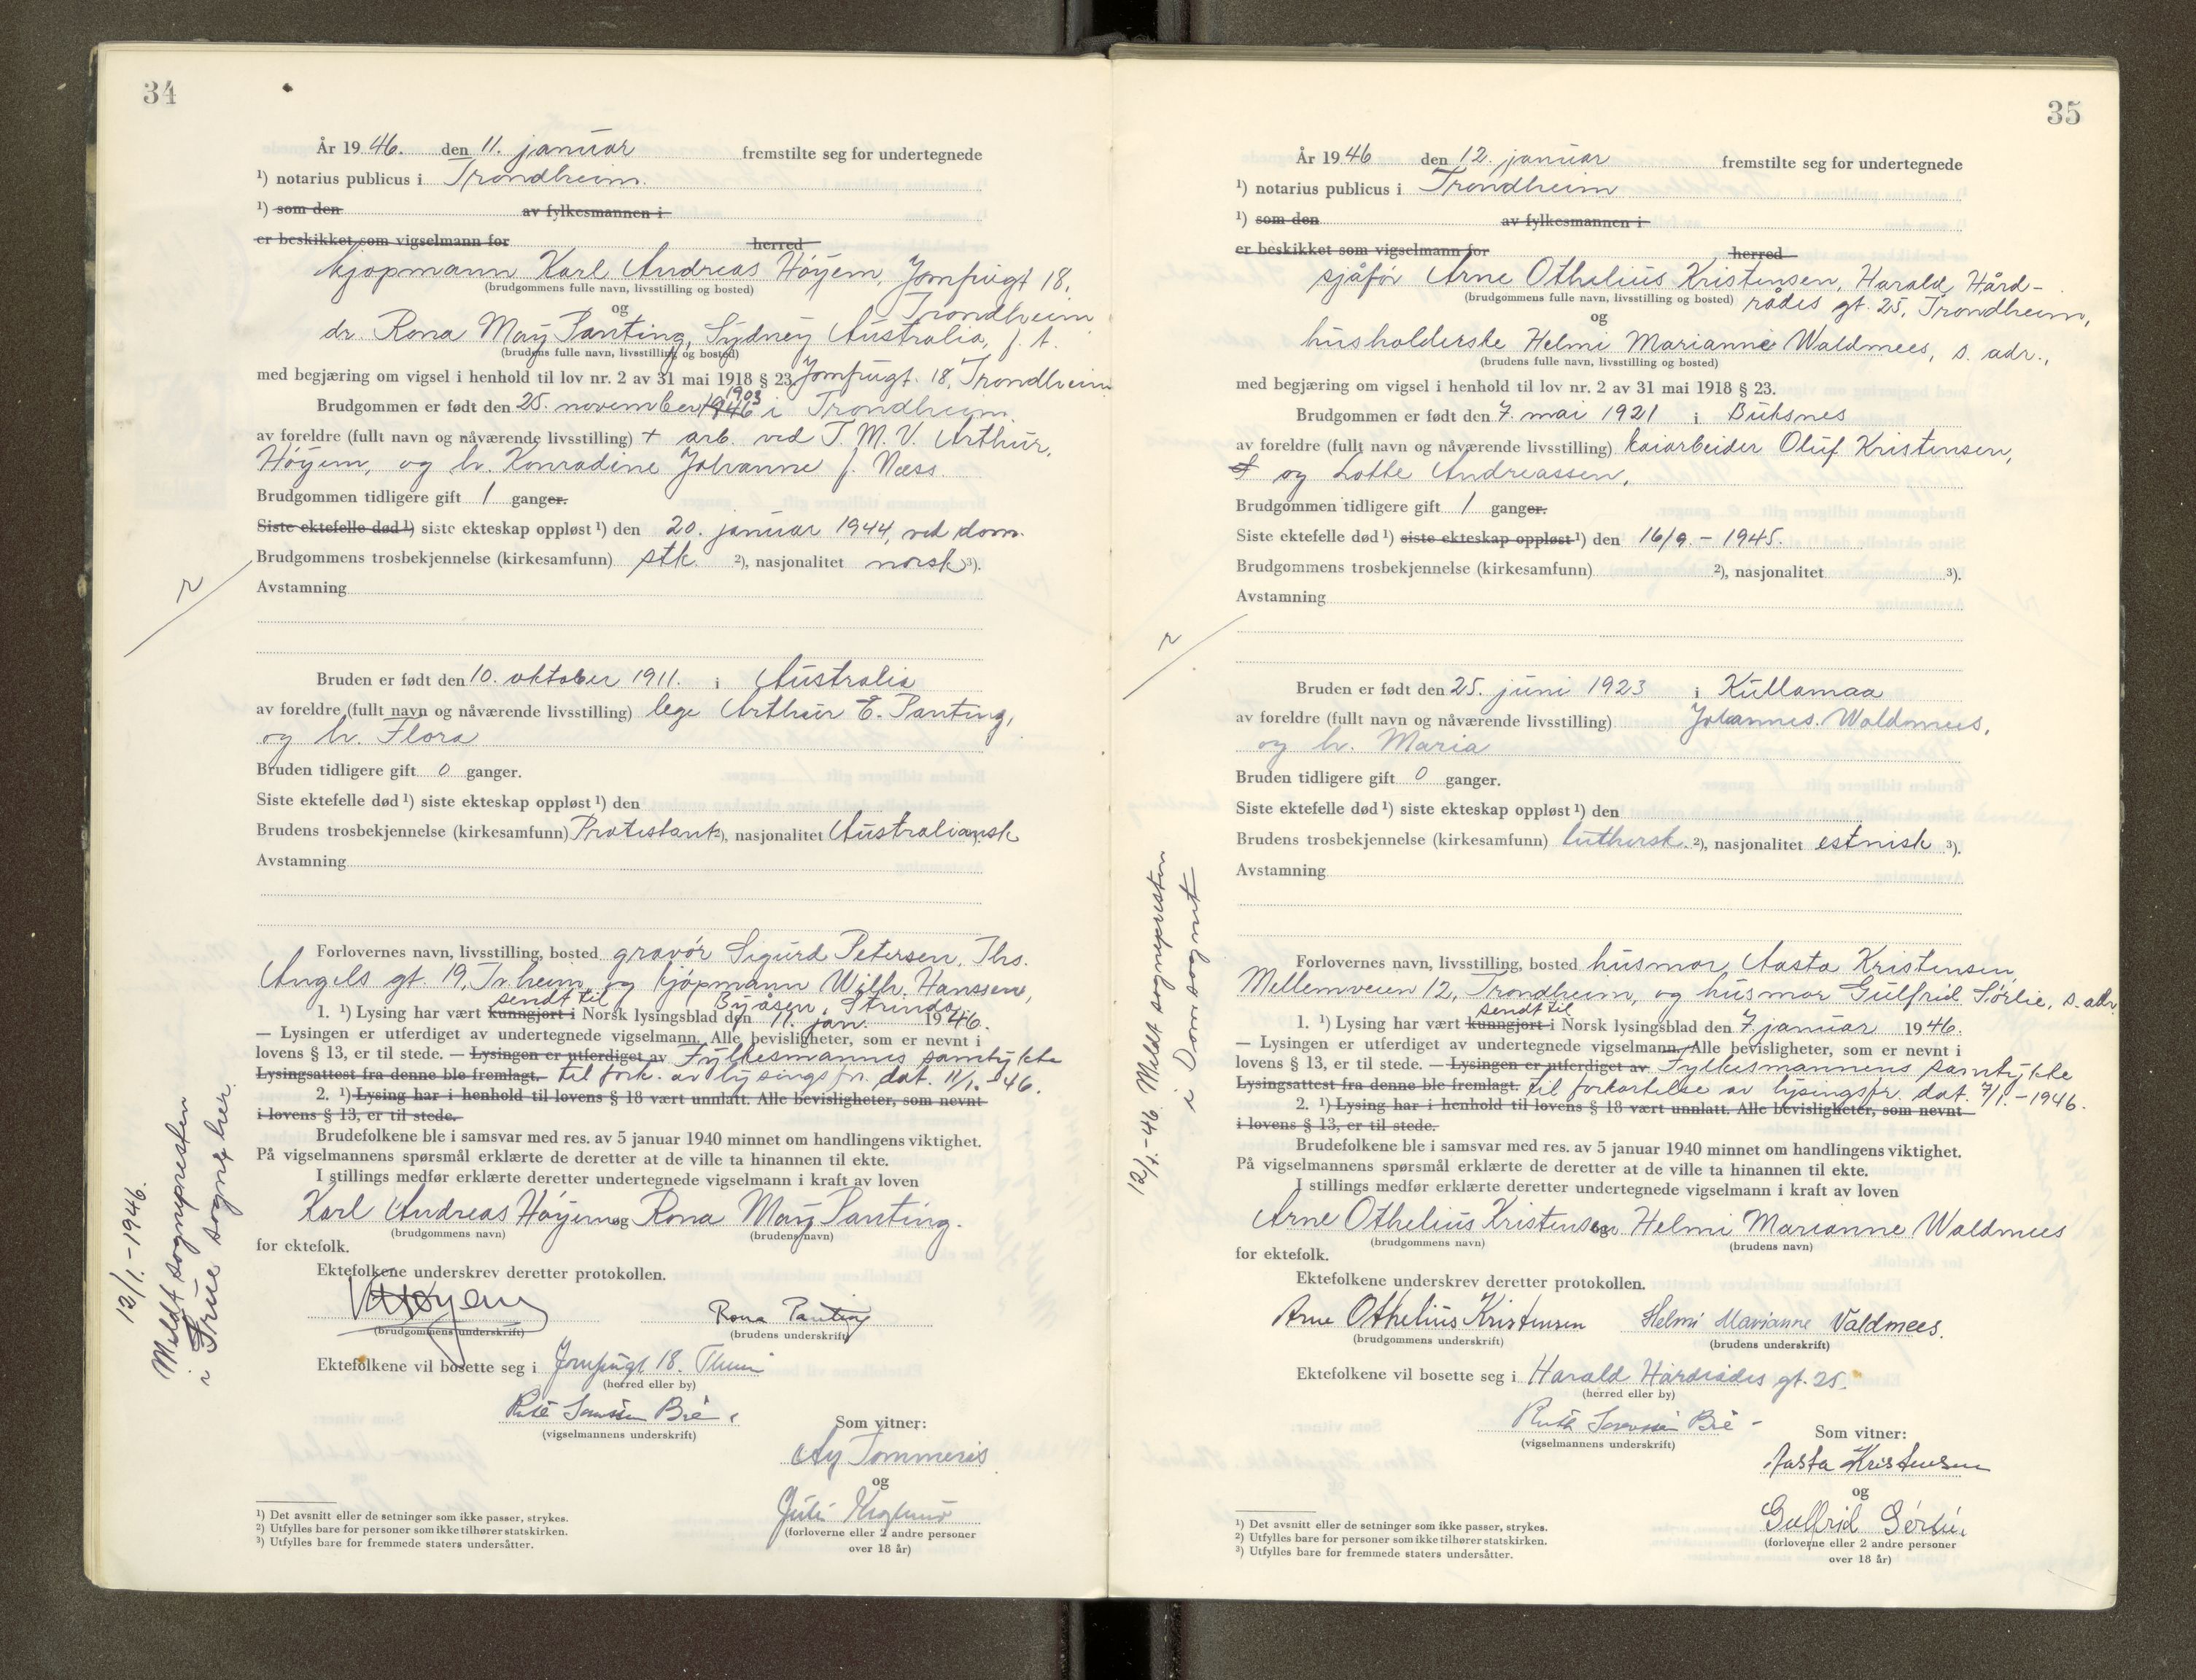 34
År 1946. den 11. januar fremstilte seg for undertegnede
¹) notarius publicus i Trondheim.
¹) som den av fylkesmannen i
er beskikket som vigselmann for herred
kjøpmann Karl Andreas Høyem, Jomfrugt 18,
(brudgommens fulle navn, livsstilling og bosted)
og Trondheim
dr. Rona May Panting, Sydney Australia, f. t.
(brudens fulle navn, livsstilling og bosted)
med begjæring om vigsel i henhold til lov nr. 2 av 31 mai 1918 § 23. Jomfrugt. 18, Trondheim
1903
Brudgommen er født den 25. november 1946 i Trondheim
av foreldre (fullt navn og nåværende livsstilling) + arb. ved T. M. V. Arthur
Høyem, og h. Konradine Johanne f. Næss.
Brudgommen tidligere gift 1 ganger.
Siste ektefelle død ¹) siste ekteskap oppløst ¹) den 20. januar 1944, ved dom.
Brudgommens trosbekjennelse (kirkesamfunn) stk. ²), nasjonalitet norsk ³).
Avstamning
Bruden er født den 10. oktober 1911. i Australia
av foreldre (fullt navn og nåværende livsstilling) lege Arthur E. Panting,
og h. Flora
Bruden tidligere gift 0 ganger.
Siste ektefelle død ¹) siste ekteskap oppløst ¹) den
Brudens trosbekjennelse (kirkesamfunn) Protestant ²), nasjonalitet Australiansk
Avstamning
Forlovernes navn, livsstilling, bosted gravør Sigurd Petersen, Ths.
Angels gt. 19, Tr.heim og kjøpmann Wilh. Hanssen,
sendt til Byåsen, Strinda
1. ¹) Lysing har vært kunngjort i Norsk lysingsblad den 11. jan. 1946.
— Lysingen er utferdiget av undertegnede vigselmann. Alle bevisligheter, som er nevnt i
lovens § 13, er til stede. — Lysingen er utferdiget av Fylkesmannens samtykke
Lysingsattest fra denne ble fremlagt. til fork. av lysingsfr. dat. 11/1. -46.
2. ¹) Lysing har i henhold til lovens § 18 vært unnlatt. Alle bevisligheter, som nevnt
i lovens § 13, er til stede.
Brudefolkene ble i samsvar med res. av 5 januar 1940 minnet om handlingens viktighet.
På vigselmannens spørsmål erklærte de deretter at de ville ta hinannen til ekte.
I stillings medfør erklærte deretter undertegnede vigselmann i kraft av loven
Karl Andreas Høyem og Rona May Panting.
(brudgommens navn) (brudens navn)
for ektefolk.
Ektefolkene underskrev deretter protokollen.
Rona Panting
(brudgommens underskrift) (brudens underskrift)
Ektefolkene vil bosette seg i Jomfrugt 18. Theim
(herred eller by)
(vigselmannens underskrift)
Som vitner:
Tommerås
og
(forloverne eller 2 andre personer
over 18 år)
¹) Det avsnitt eller de setninger som ikke passer, strykes.
²) Utfylles bare for personer som ikke tilhører statskirken.
³) Utfylles bare for fremmede staters undersåtter.
12/1.-1946.
Meldt sognepresten
i Frue sogn her.
35
År 1946 den 12. januar fremstilte seg for undertegnede
¹) notarius publicus i Trondheim
¹) som den av fylkesmannen i
er beskikket som vigselmann for herred
sjåfør Arne Othelius Kristensen, Harald Hård-
(brudgommens fulle navn, livsstilling og bosted) rådes gt. 25, Trondheim,
og
husholderske Helmi Marianne Waldmees, s. adr.,
(brudens fulle navn, livsstilling og bosted)
med begjæring om vigsel i henhold til lov nr. 2 av 31 mai 1918 § 23.
Brudgommen er født den 7. mai 1921 i Buksnes
av foreldre (fullt navn og nåværende livsstilling) kaiarbeider Oluf Kristensen,
og Lotte Andreassen,
Brudgommen tidligere gift 1 ganger.
Siste ektefelle død ¹) siste ekteskap oppløst ¹) den 16/9. - 1945.
Brudgommens trosbekjennelse (kirkesamfunn) ²), nasjonalitet ³).
Avstamning
Bruden er født den 25. juni 1923 i Kullamaa
av foreldre (fullt navn og nåværende livsstilling) Johannes Waldmees,
og h. Maria
Bruden tidligere gift 0 ganger.
Siste ektefelle død ¹) siste ekteskap oppløst ¹) den
Brudens trosbekjennelse (kirkesamfunn) luthersk. ²), nasjonalitet estnisk ³).
Avstamning
Forlovernes navn, livsstilling, bosted husmor Aasta Kristensen,
Mellemveien 12, Trondheim, og husmor Gulfrid Sørlie, s. adr.
sendt til
1. ¹) Lysing har vært kunngjort i Norsk lysingsblad den 7. januar 1946.
— Lysingen er utferdiget av undertegnede vigselmann. Alle bevisligheter, som er nevnt i
lovens § 13, er til stede. — Lysingen er utferdiget av Fylkesmannens samtykke
Lysingsattest fra denne ble fremlagt. til forkortelse av lysingsfr. dat. 7/1. - 1946.
2. ¹) Lysing har i henhold til lovens § 18 vært unnlatt. Alle bevisligheter, som nevnt
i lovens § 13, er til stede.
Brudefolkene ble i samsvar med res. av 5 januar 1940 minnet om handlingens viktighet.
På vigselmannens spørsmål erklærte de deretter at de ville ta hinannen til ekte.
I stillings medfør erklærte deretter undertegnede vigselmann i kraft av loven
Arne Othelius Kristensen og Helmi Marianne Waldmees
(brudgommens navn) (brudens navn)
for ektefolk.
Ektefolkene underskrev deretter protokollen.
Arne Othelius Kristensen Helmi Marianne Valdmees.
(brudgommens underskrift) (brudens underskrift)
Ektefolkene vil bosette seg i Harald Hårdrådes gt. 25.
(herred eller by)
(vigselmannens underskrift)
Som vitner:
Aasta Kristensen
og
Gulfrid Sørlie.
(forloverne eller 2 andre personer
over 18 år)
¹) Det avsnitt eller de setninger som ikke passer, strykes.
²) Utfylles bare for personer som ikke tilhører statskirken.
³) Utfylles bare for fremmede staters undersåtter.
12/1.-46. Meldt sognepresten
i Dom sognet